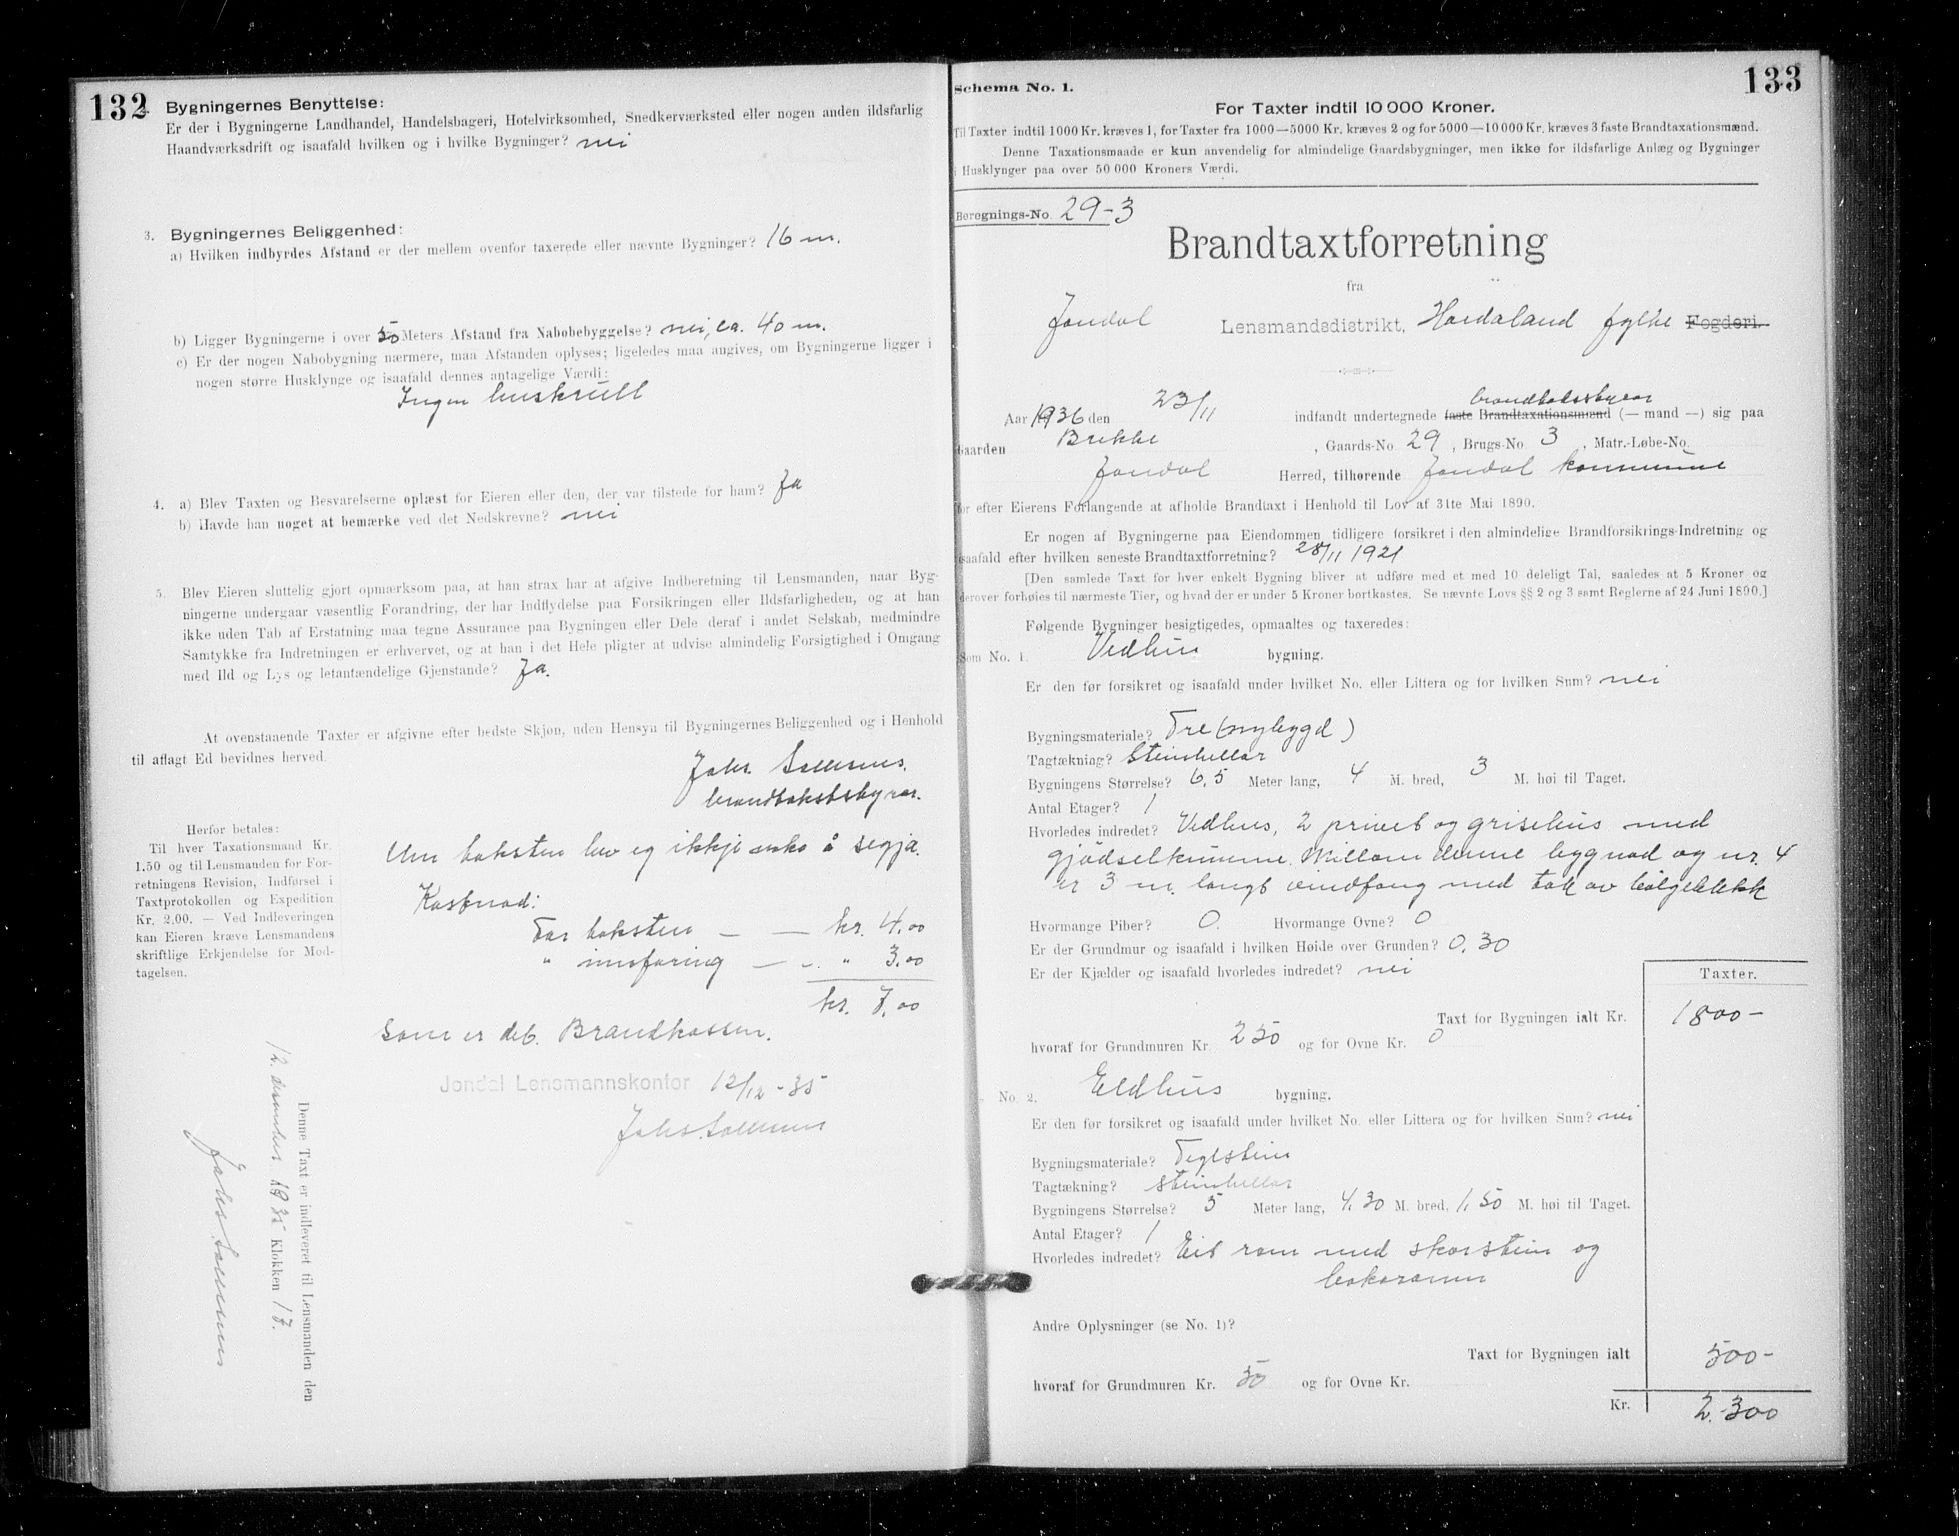 132
Bygningernes Benyttelse:
Er der i Bygningerne Landhandel, Handelsbageri, Hotelvirksomhed, Snedkerværksted eller nogen anden ildsfarlig
Haandværksdrift og isaafald hvilken og i hvilke Bygninger? nei
3. Bygningernes Beliggenhed:
a) Hvilken indbyrdes Afstand er der mellem ovenfor taxerede eller nævnte Bygninger? 16 m.
b) Ligger Bygningerne i over 50 Meters Afstand fra Nabobebyggelse? nei, ca. 40 m.
c) Er der nogen Nabobygning nærmere, maa Afstanden oplyses; ligeledes maa angives, om Bygningerne ligger i
nogen større Husklynge og isaafald dennes antagelige Værdi:
Ingen huskrull
4. a) Blev Taxten og Besvarelserne oplæst for Eieren eller den, der var tilstede for ham? Ja
b) Havde han noget at bemærke ved det Nedskrevne? nei
5. Blev Eieren sluttelig gjort opmærksom paa, at han strax har at afgive Indberetning til Lensmanden, naar Byg-
ningerne undergaar væsentlig Forandring, der har Indflydelse paa Forsikringen eller Ildsfarligheden, og at han
ikke uden Tab af Erstatning maa tegne Assurance paa Bygningen eller Dele deraf i andet Selskab, medmindre
Samtykke fra Indretningen er erhvervet, og at han i det Hele pligter at udvise almindelig Forsigtighed i Omgang
med Ild og Lys og letantændelige Gjenstande? Ja.
At ovenstaaende Taxter er afgivne efter bedste Skjøn, uden Hensyn til Bygningernes Beliggenhed og i Henhold
til aflagt Ed bevidnes herved.
Johs. Sollesnes.
brandtakststyrar.
Herfor betales:
Til hver Taxationsmand Kr.
1.50 og til Lensmanden for For-
retningens Revision, Indførsel i
Taxtprotokollen og Expedition
Kr. 2.00. — Ved Indleveringen
kan Eieren kræve Lensmandens
skriftlige Erkjendelse for Mod-
tagelsen.
Um taksten hev eg ikkje anka å segja.
Kostnad:
For taksten — — kr. 4.00
" innføring — - " 3.00
kr. 7.00
Som er deb. Brandkassen.
Jondal Lensmannskontor 12/12 - 35
Johs. Sollesnes
Denne Taxt er indleveret til Lensmanden den
12. desember 1935 Klokken 17.
Johs. Sollesnes
133
Schema No. 1.
For Taxter indtil 10 000 Kroner.
Til Taxter indtil 1000 Kr. kræves 1, for Taxter fra 1000—5000 Kr. kræves 2 og for 5000—10 000 Kr. kræves 3 faste Brandtaxationsmænd.
Denne Taxationsmaade er kun anvendelig for almindelige Gaardsbygninger, men ikke for ildsfarlige Anlæg og Bygninger
i Husklynger paa over 50 000 Kroners Værdi.
Beregnings-No. 29-3
Brandtaxtforretning
fra
Jondal Lensmandsdistrikt, Hordaland fylke Fogderi.
brandtakststyrar
Aar 1936 den 23/11 indfandt undertegnede faste Brandtaxationsmænd (— mand —) sig paa
Gaarden Brekke, Gaards-No. 29, Brugs-No. 3, Matr.-Løbe-No.
Jondal Herred, tilhørende Jondal kommune
for efter Eierens Forlangende at afholde Brandtaxt i Henhold til Lov af 31te Mai 1890.
Er nogen af Bygningerne paa Eiendommen tidligere forsikret i den almindelige Brandforsikrings-Indretning og
isaafald efter hvilken seneste Brandtaxtforretning? 28/11 1921
[Den samlede Taxt for hver enkelt Bygning bliver at udføre med et med 10 deleligt Tal, saaledes at 5 Kroner og
derover forhøies til nærmeste Tier, og hvad der er under 5 Kroner bortkastes. Se nævnte Lovs §§ 2 og 3 samt Reglerne af 24 Juni 1890.]
Følgende Bygninger besigtigedes, opmaaltes og taxeredes:
Som No. 1. Vedhus bygning.
Er den før forsikret og isaafald under hvilket No. eller Littera og for hvilken Sum? nei
Bygningsmateriale? Tre (nybygd)
Tagtækning? Steinhellar
Bygningens Størrelse? 6,5 Meter lang, 4 M. bred, 3 M. høi til Taget.
Antal Etager? 1
Hvorledes indredet? Vedhus, 2 privet og grisehus med
gjødselkumme. Millom denne bygnad og nr. 4
er 3 m. langt vindfang med tak av bølgeblekk
Hvormange Piber? 0. Hvormange Ovne? 0
Er der Grundmur og isaafald i hvilken Høide over Grunden? 0,30
Er der Kjælder og isaafald hvorledes indredet? nei
Taxter.
Taxt for Bygningen ialt Kr. 1800-
hvoraf for Grundmuren Kr. 250 og for Ovne Kr. 0
No. 2. Eldhus bygning.
Er den før forsikret og isaafald under hvilket No. eller Littera og for hvilken Sum? nei
Bygningsmateriale? Teglstein
Tagtækning? steinhellar
Bygningens Størrelse? 5 Meter lang, 4,30 M. bred, 1,50 M. høi til Taget.
Antal Etager? 1
Hvorledes indredet? Eit rom med skorstein og
bakaromn
Andre Oplysninger (se No. 1)?
Taxt for Bygningen ialt 500-
hvoraf for Grundmuren Kr. 50 og for Ovne Kr.
Kr. 2.300